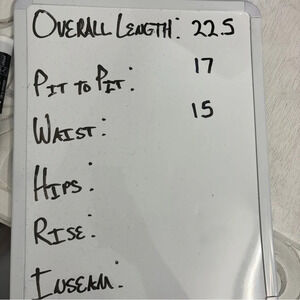 OVERALL LENGTH: 22.5
PIT TO PIT: 17
WAIST: 15
HIPS:
RISE:
INSEAM: